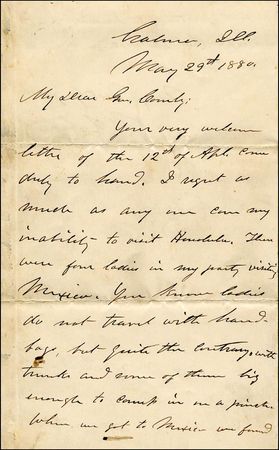 Galena, Ill.
May 29th 1880.
My Dear Gn. Comly;
Your very welcome
letter of the 12th of Apl. came
duly to hand. I regret as
much as any one can my
inability to visit Honolulu. There
were four ladies in my party visiting
Mexico. You know ladies
do not travel with hand-
bags, but quite the contrary, with
trunks and some of them big
enough to camp in on a pinch.
When we got to Mexico we found